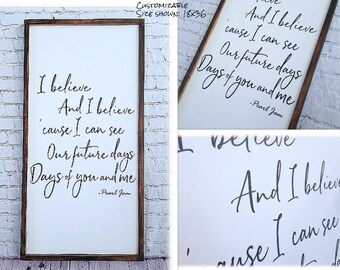 CUSTOMIZABLE
SIZE SHOWN: 18X36
I believe
And I believe
'cause I can see
Our future days
Days of you and me
-Pearl Jam
I believe
And I believe
'cause I can see
Our future days
Days of you and me
-Pearl Jam
I believe
And I believe
'cause I can see